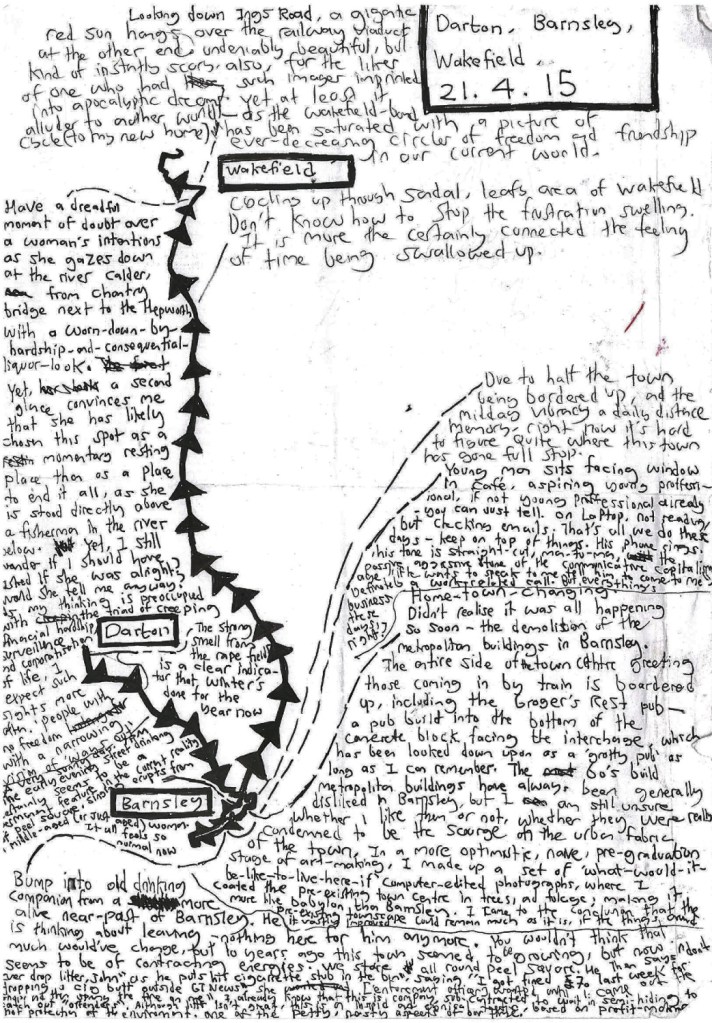 Looking down Ings Road, a gigantic
red sun hangs over the railway viaduct
at the other end, undeniably beautiful, but
kind of instantly scary also, for the likes
of one who had such images imprinted
into apocalyptic dreams. Yet at least it
alludes to another world — as the Wakefield-bound
cycle (to my new home) has been saturated with a picture of
ever-decreasing circles of freedom and friendship
in our current world.
Darton, Barnsley,
Wakefield.
21.4.15
Wakefield
Cycling up through Sandal, leafy area of Wakefield
Don't know how to stop the frustration swelling.
It is more the certainly connected the feeling
of time being swallowed up.
Have a dreadful
moment of doubt over
a woman's intentions
as she gazes down
at the river Calder,
from Chantry
bridge next to the Hepworth
with a worn-down-by-
hardship-and-consequential-
liquor-look.
Yet, a second
glance convinces me
that she has likely
chosen this spot as a
momentary resting
place than as a place
to end it all, as she
is stood directly above
a fisherman in the river
below. Yet, I still
wonder if I should have
asked if she was alright,
would she tell me anyway;
as my thinking is preoccupied
with the triad of creeping
financial hardship,
surveillance
and corporatisation
of life, I
expect such
sights more
often: people with
no freedom
with a narrowing
the early evening street drinking
certainly seems to be a
erupts from
middle-aged (or just aged) woman.
It all feels so
normal now
Darton
The strong
smell from
the rape fields
is a clear indica-
tor that winter's
done for the
year now
Barnsley
Due to half the town
being bordered up, and the
midday vibrancy a daily distance
memory, right now it's hard
to figure quite where this town
has gone full stop.
Young man sits facing window
in café, aspiring young proffess-
ional, if not young proffessional already
- you can just tell. On Laptop, not reading,
but checking emails. That's all we do these
days - keep on top of things. His phone rings.
his tone is straight-cut, man-to-man,
passive aggressive tone of the communicative capitalism
age, "if he wants to speak to me tell him to come to me"
Definately a work-related call. But everything's
business
these
days
right?
Home-town-Changing
Didn't realise it was all happening
so soon - the demolition of the
metropolitan buildings in Barnsley.
The entire side of the town centre greeting
those coming in by train is boarded
up, including the Groger's Rest pub —
a pub build into the bottom of the
concrete block facing the interchange, which
has been looked down upon as a 'grotty pub' as
long as I can remember. The 60's build
metropolitan buildings have always been generally
disliked in Barnsley, but I am still unsure
whether I like them or not, whether they were really
condemned to be the scourge on the urban fabric
of the town. In a more optimistic, naive, pre-graduation
stage of art-making, I made up a set of 'what-would-it-
be-like-to-live-here-if' computer-edited photographs, where I
coated the pre-existing town centre in trees, and foleage; making it
more like babylon, than Barnsley. I came to the conclusion that the
pre-existing townscape could remain much as it is, if the things around
it were vastly improved
Bump into old drinking
companion from a more
alive near-past of Barnsley. He
is thinking about leaving
nothing here for him anymore. You wouldn't think that
much would've change, but 10 years ago this town seemed to be growing, but now
seems to be of contracting energies. We stare all round peel square. He then says "don't
ever drop litter, John" as he puts his cigarette stub in the bin, saying "I got fined £70 last week for
dropping a cig butt outside GT News"